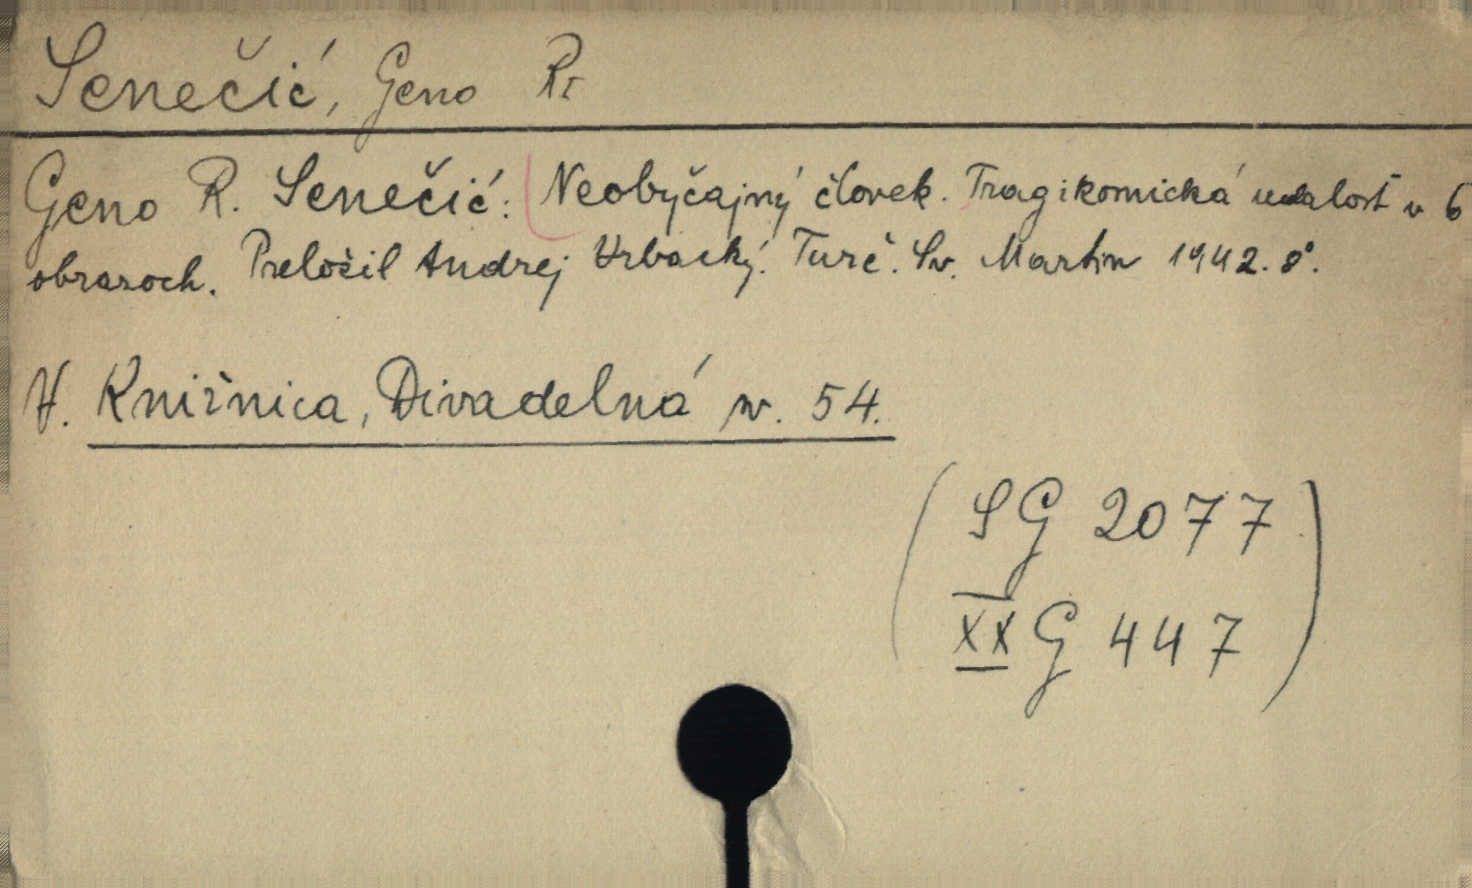 Senečić, Geno R.
Geno R. Senečić: Neobyčajný človek. Tragikomická udalosť v 6
obrazoch. Preložil Andrej Vrbacký. Turč. Sv. Martin 1942. 8°.
V. Knižnica, Divadelná sv. 54.
(SG 2077
XX G 447)